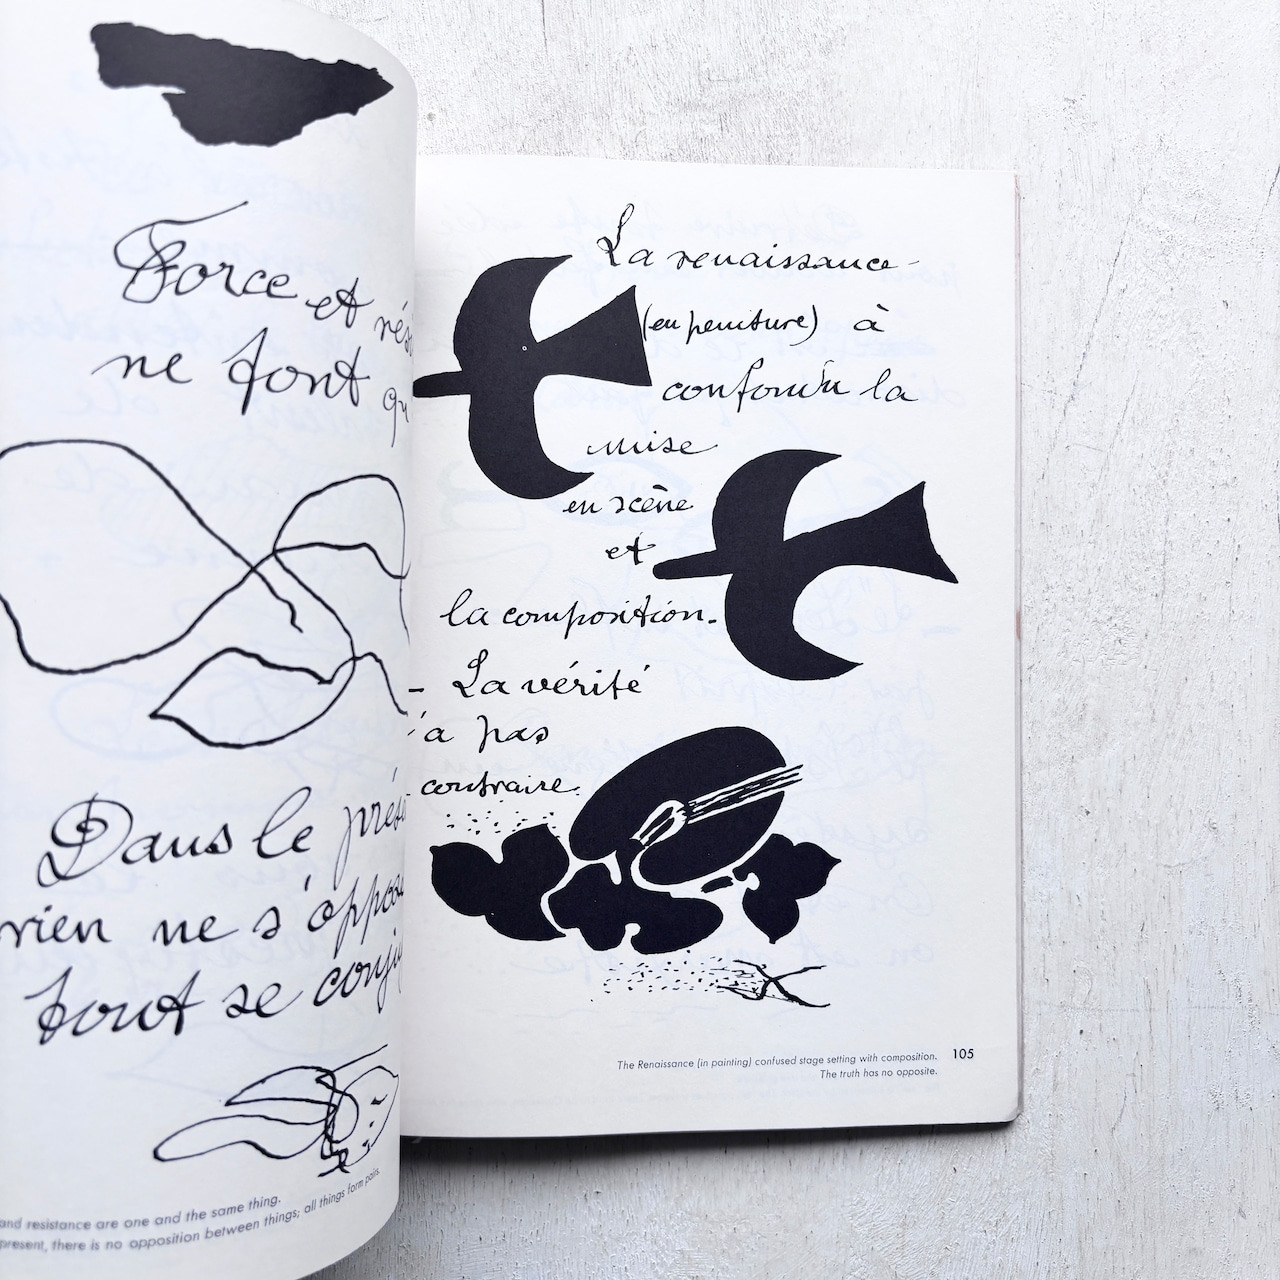 Force et
ne font
Dans le
rien ne s'
tout se
and resistance are one and the same thing.
present, there is no opposition between things; all things form pairs.
La renaissance
(en peinture) à
confondu la
mise
en scène
et
la composition.
- La vérité
'a pas
contraire.
The Renaissance (in painting) confused stage setting with composition. 105
The truth has no opposite.